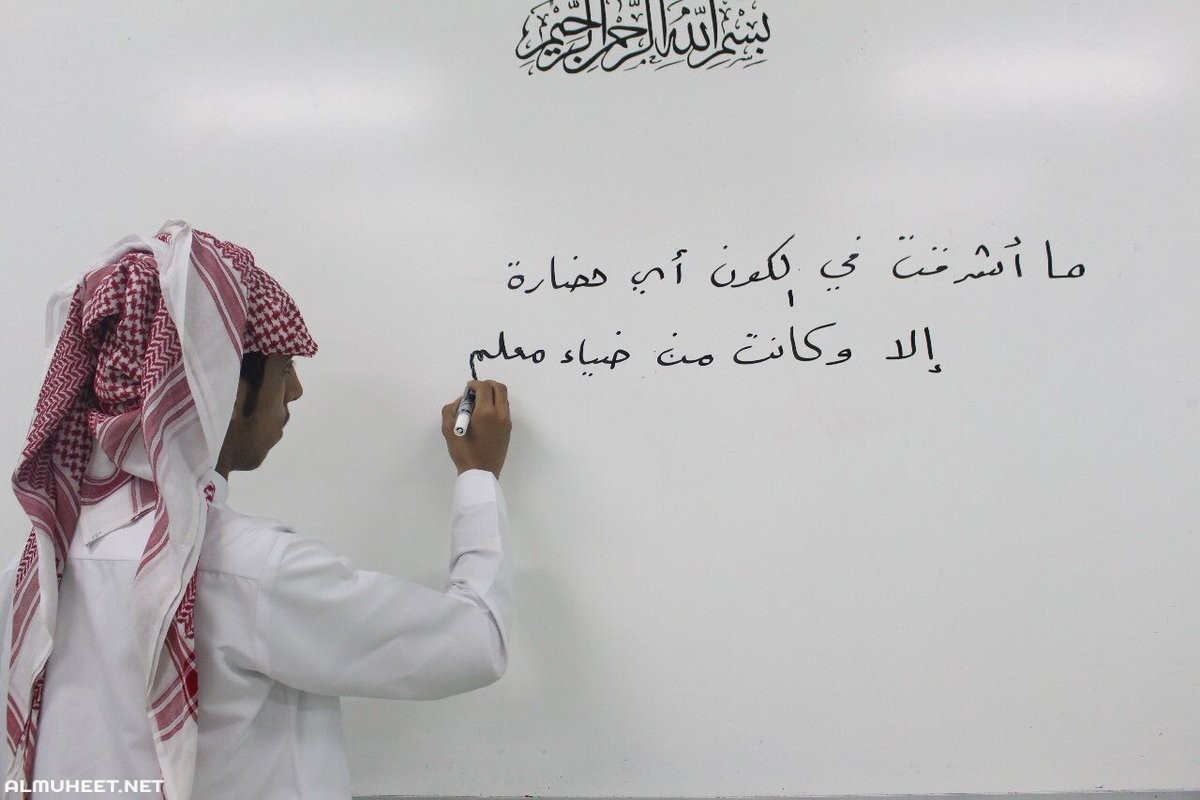 بسم الله الرحمن الرحيم
ما أشرقت في الكون أي حضارة
إلا وكانت من ضياء معلم
ALMUHEET.NET